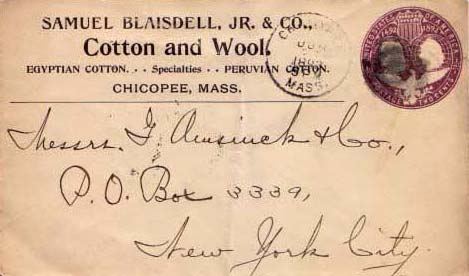 SAMUEL BLAISDELL, JR. & CO.,
Cotton and Wool.
EGYPTIAN COTTON. . . Specialties . . PERUVIAN COTTON.
CHICOPEE, MASS.
MASS.
UNITED STATES OF AMERICA
1492 1892
TWO CENTS
Messrs. G Amsinck & Co.,
P. O. Box 3339,
New York City.